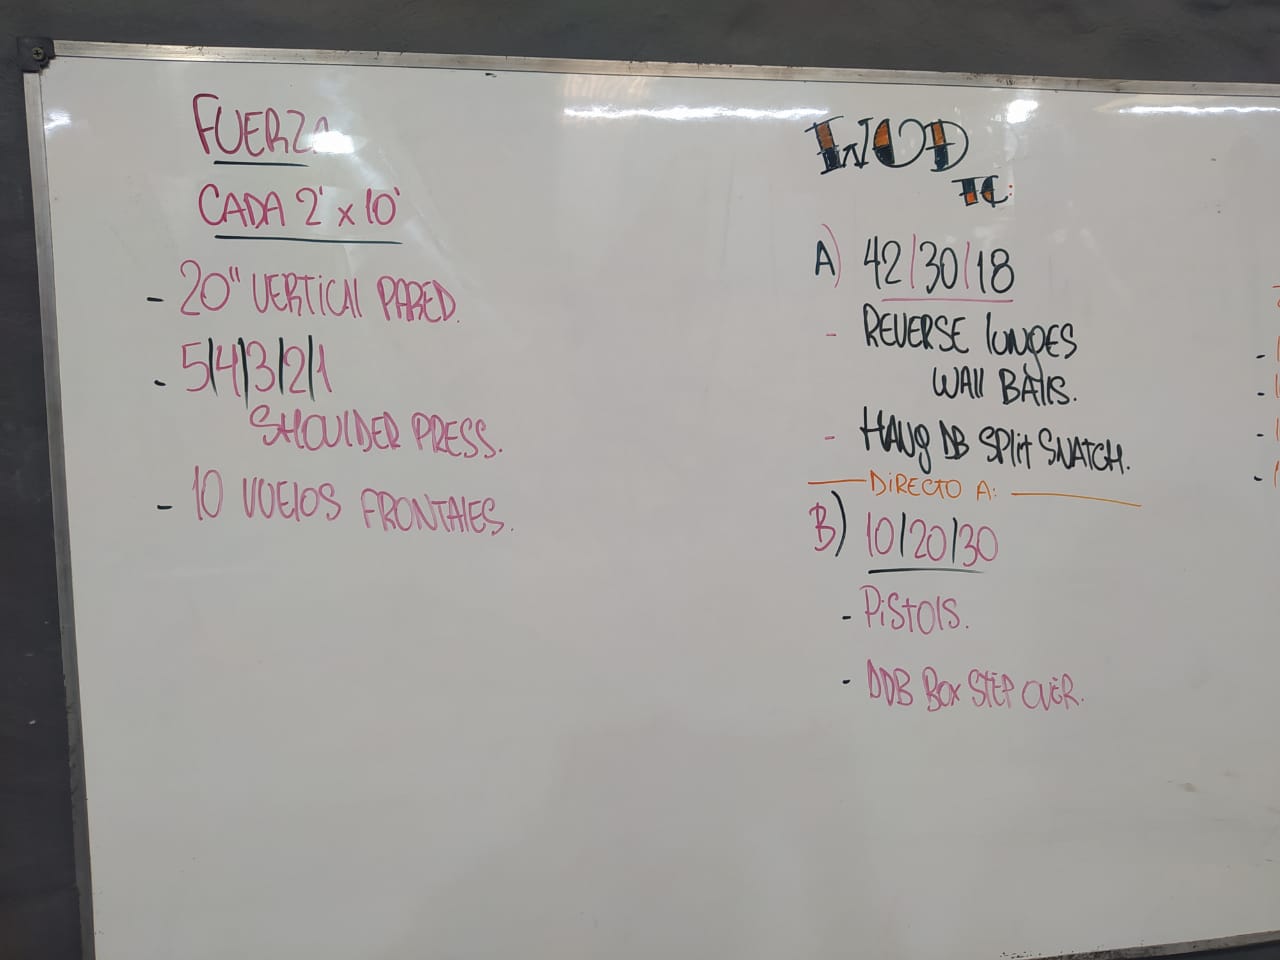 FUERZA
CADA 2' x 10'
- 20" VERTICAL PARED.
- 5/4/3/2/1
SHOULDER PRESS.
- 10 VUELOS FRONTALES.
WOD
TC:
A) 42/30/18
- REVERSE LUNGES
WALL BALLS.
- HANG DB SPLIT SNATCH.
DIRECTO A:
B) 10/20/30
- PISTOLS.
- DDB BOX STEP OVER.